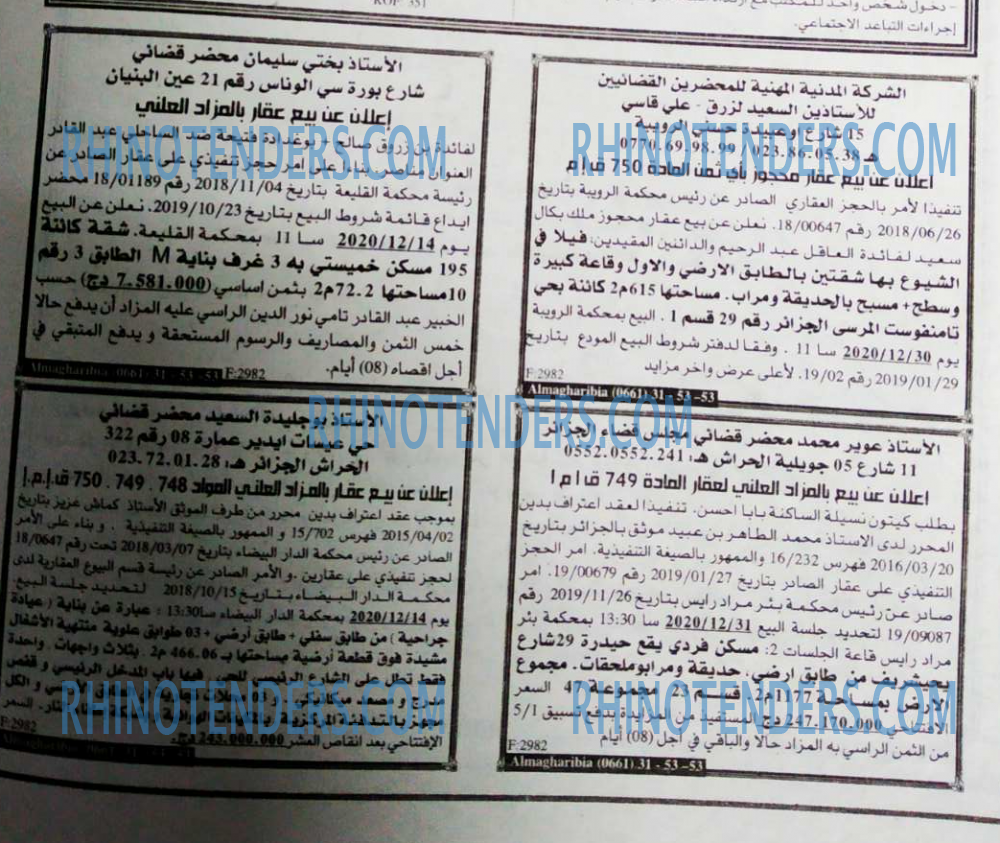 ROP 351
- دخول شخص واحد للمكتب مع
إجراءات التباعد الاجتماعي.
الشركة المدنية المهنية للمحضرين القضائيين
للأستاذين السعيد لزرق - علي قاسي
15 شارع أوعبيدة حسني الرويبة
هـ 0770.69.98.99 / 023.86.05.38
اعلان عن بيع عقار محجوز بأي ثمن المادة 750 ق إ م
تنفيذا لأمر بالحجز العقاري الصادر عن رئيس محكمة الرويبة بتاريخ
2018/06/26 رقم 18/00647. نعلن عن بيع عقار محجوز ملك بكال
سعيد لفائدة العاقل عبد الرحيم والدائنين المقيدين: فيلا في
الشيوع بها شقتين بالطابق الارضي والاول وقاعة كبيرة
وسطح+ مسبح بالحديقة ومراب. مساحتها 615م2 كائنة بحي
تامنفوست المرسى الجزائر رقم 29 قسم 1 . البيع بمحكمة الرويبة
يوم 2020/12/30 سا 11 . وفقا لدفتر شروط البيع المودع بتاريخ
2019/01/29 رقم 19/02. لأعلى عرض واخر مزايد
F:2982
Almagharibia (0661) 31 - 53 -53
الأستاذ بختي سليمان محضر قضائي
شارع بورة سي الوناس رقم 21 عين البنيان
إعلان عن بيع عقار بالمزاد العلني
لفائدة بن زروق صالح + بوعدادة فتيحة ضد الساحلي عبد القادر
العنوان مناصر، بناء على امر حجز تنفيذي على عقار الصادر عن
رئيسة محكمة القليعة بتاريخ 2018/11/04 رقم 18/01189 محضر
ايداع قائمة شروط البيع بتاريخ 2019/10/23. نعلن عن البيع
يوم 2020/12/14 سا 11 بمحكمة القليعة. شقة كائنة
195 مسكن خميستي به 3 غرف بناية M الطابق 3 رقم
10مساحتها 72.2م2 بثمن اساسي (7.581.000 دج) حسب
الخبير عبد القادر تامي نور الدين الراسي عليه المزاد أن يدفع حالا
خمس الثمن والمصاريف والرسوم المستحقة و يدفع المتبقي في
أجل اقصاه (08) أيام.
F:2982
Almagharibia (0661) 31 - 53 -53
الأستاذ عوير محمد محضر قضائي مجلس قضاء الجزائر
11 شارع 05 جويلية الحراش هـ: 0552.0552.241
إعلان عن بيع بالمزاد العلني لعقار المادة 749 ق ا م ا
بطلب كيتون نسيلة الساكنة بابا احسن. تنفيذا لعقد اعتراف بدين
المحرر لدى الاستاذ محمد الطاهر بن عبيد موثق بالجزائر بتاريخ
2016/03/20 فهرس 16/232 والممهور بالصيغة التنفيذية. امر الحجز
التنفيذي على عقار الصادر بتاريخ 2019/01/27 رقم 19/00679. امر
صادر عن رئيس محكمة بئر مراد رايس بتاريخ 2019/11/26 رقم
19/09087 لتحديد جلسة البيع 2020/12/31 سا 13:30 بمحكمة بئر
مراد رايس قاعة الجلسات 2: مسكن فردي يقع حيدرة 29شارع
يحيشريف من طابق ارضي، حديقة ومراب وملحقات. مجموع
الارض بمساحة 1177م2 قسم 23 مجموعة 47 السعر
الافتتاحي 247.170.000 دج المستفيد من المزايدة يدفع تسبيق 5/1
من الثمن الراسي به المزاد حالا والباقي في اجل (08) أيام
F:2982
Almagharibia (0661) 31 - 53 -53
الأستاذ بوجليدة السعيد محضر قضائي
حي عميمات ايدير عمارة 08 رقم 322
الحراش الجزائر هـ: 023.72.01.28
إعلان عن بيع عقار بالمزاد العلني المواد 748 . 749 . 750 ق.إ.م.إ
بموجب عقد اعتراف بدين محرر من طرف الموثق الأستاذ كماش عزيز بتاريخ
2015/04/02 فهرس 15/702 و الممهور بالصيغة التنفيذية . و بناء على الأمر
الصادر عن رئيس محكمة الدار البيضاء بتاريخ 2018/03/07 تحت رقم 18/0647
لحجز تنفيذي على عقارين .و الأمر الصادر عن رئيسة قسم البيوع العقارية لدى
محكمة الدار البيضاء بتاريخ 2018/10/15 لتحديد جلسة البيع.
يوم 2020/12/14 بمحكمة الدار البيضاء سا13:30: عبارة عن بناية ( عيادة
جراحية ) من طابق سفلي + طابق أرضي + 03 طوابق علوية منتهية الأشغال
مشيدة فوق قطعة أرضية مساحتها بـ 466.06 م2 . بثلاث واجهات . واحدة
فقط تطل على الشارع الرئيسي للحي. فيها باب المدخل الرئيسي و قفص
الدرج و مصعد ميكانيكي و الكل
مجهز بالتدفئة المركزية السعر
الإفتتاحي بعد انقاص العشر 243.000.000 دج.
F:2982
Almagharibia (0661) 31 - 53 -53
RHINOTENDERS.COM
RHINOTENDERS.COM
RHINOTENDERS.COM
RHINOTENDERS.COM
RHINOTENDERS.COM